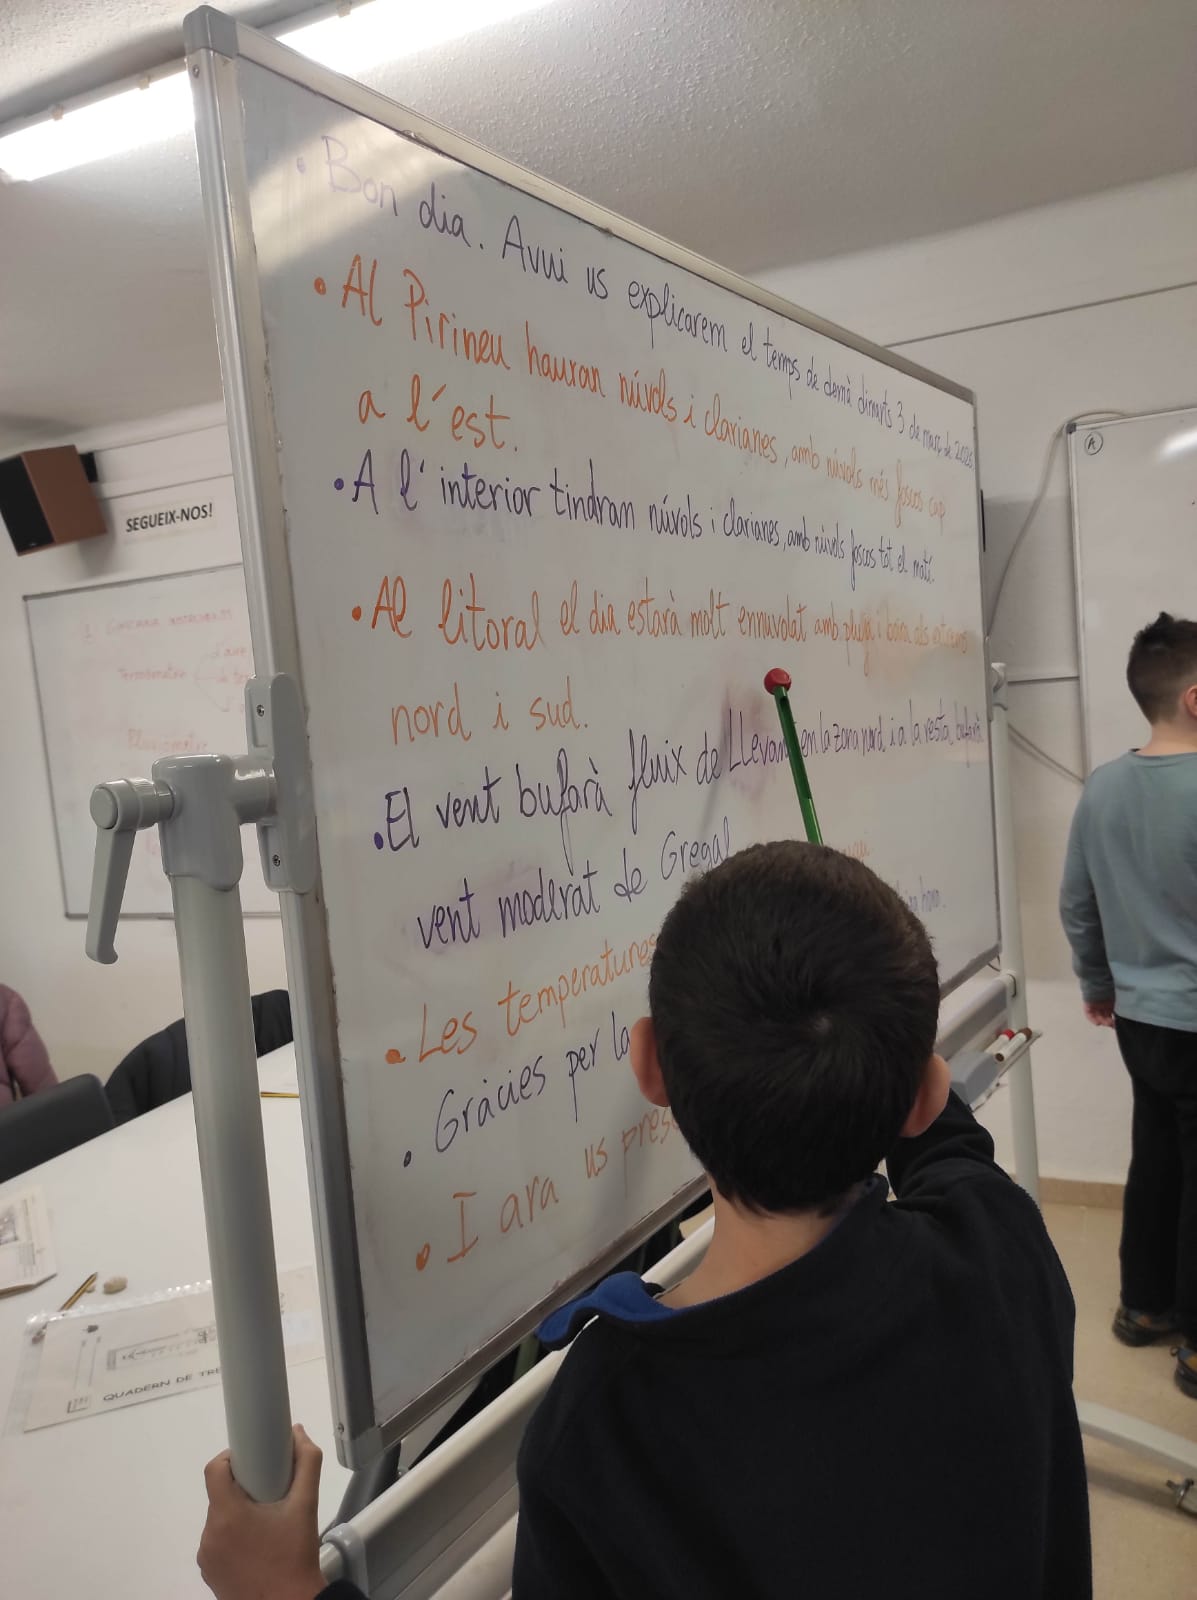 • Bon dia. Avui us explicarem el temps de demà dimarts 3 de març de 2026
• Al Pirineu hauran núvols i clarianes, amb núvols més foscos cap
a l'est.
• A l'interior tindran núvols i clarianes, amb núvols foscos tot el matí.
• Al litoral el dia estarà molt ennuvolat amb pluja i boira als extrems
nord i sud.
• El vent bufarà fluix de Llevant en la zona nord i a la resta bufarà
vent moderat de Gregal
• Les temperatures
• Gràcies per la
hora.
• I ara us pres
SEGUEIX-NOS!
Termòmetre
Pluviòmetre
QUADERN DE TRE
A